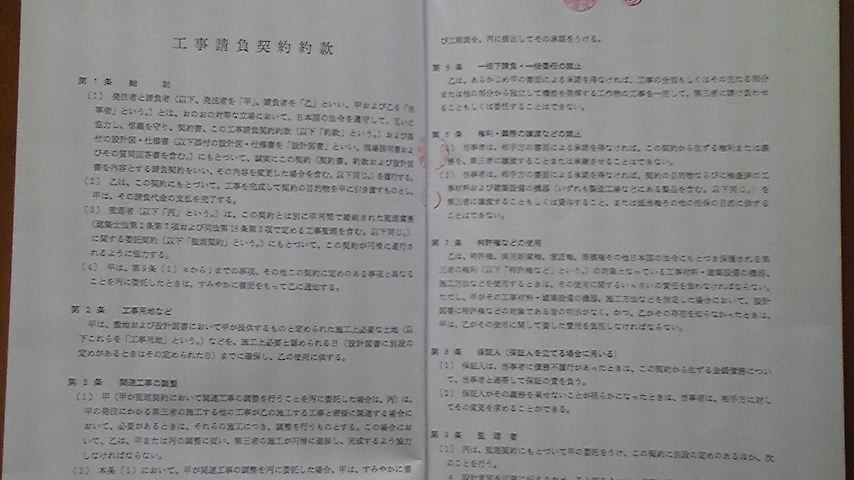 工事請負契約約款
第1条 総則
(1) 発注者と請負者(以下、発注者を「甲」、請負者を「乙」といい、甲および乙を「当
事者」という。)とは、おのおの対等な立場において、日本国の法令を遵守して、互いに
協力し、信義を守り、契約書、この工事請負契約約款(以下「約款」という。)および添
付の設計図・仕様書(以下添付の設計図・仕様書を「設計図書」といい、現場説明書およ
びその質問回答書を含む。)にもとづいて、誠実にこの契約(契約書、約款および設計図
書を内容とする請負契約をいい、その内容を変更した場合を含む。以下同じ。)を履行する。
(2) 乙は、この契約にもとづいて、工事を完成して契約の目的物を甲に引き渡すものとし、
甲は、その請負代金の支払を完了する。
(3) 監理者(以下「丙」という。)は、この契約とは別に甲丙間で締結された監理業務
(建築士法第2条第7項および同法第18条第3項で定める工事監理を含む。以下同じ。)
に関する委託契約(以下「監理契約」という。)にもとづいて、この契約が円滑に遂行さ
れるように協力する。
(4) 甲は、第9条(1)aからiまでの事項、その他この契約に定めのある事項と異なる
ことを丙に委託したときは、すみやかに書面をもって乙に通知する。
第2条 工事用地など
甲は、敷地および設計図書において甲が提供するものと定められた施工上必要な土地(以
下これらを「工事用地」という。)などを、施工上必要と認められる日(設計図書に別段の
定めがあるときはその定められた日)までに確保し、乙の使用に供する。
第3条 関連工事の調整
(1) 甲(甲が監理契約において関連工事の調整を行うことを丙に委託した場合は、丙)は、
甲の発注にかかる第三者の施工する他の工事が乙の施工する工事と密接に関連する場合に
おいて、必要があるときは、それらの施工につき、調整を行うものとする。この場合にお
いて、乙は、甲または丙の調整に従い、第三者の施工が円滑に進捗し、完成するよう協力
しなければならない。
(2) 本条(1)において、甲が関連工事の調整を丙に委託した場合、甲は、すみやかに書
び工程表を、丙に提出してその承認をうける。
第5条 一括下請負・一括委任の禁止
乙は、あらかじめ甲の書面による承諾を得なければ、工事の全部もしくはその主たる部分
または他の部分から独立して機能を発揮する工作物の工事を一括して、第三者に請け負わせ
ることもしくは委任することはできない。
第6条 権利・義務の譲渡などの禁止
(1) 当事者は、相手方の書面による承諾を得なければ、この契約から生ずる権利または義
務を、第三者に譲渡することまたは承継させることはできない。
(2) 当事者は、相手方の書面による承諾を得なければ、契約の目的物ならびに検査済の工
事材料および建築設備の機器(いずれも製造工場などにある製品を含む。以下同じ。)を
第三者に譲渡することもしくは貸与すること、または抵当権その他の担保の目的に供する
ことはできない。
第7条 特許権などの使用
乙は、特許権、実用新案権、意匠権、商標権その他日本国の法令にもとづき保護される第
三者の権利(以下「特許権など」という。)の対象となっている工事材料・建築設備の機器、
施工方法などを使用するときは、その使用に関するいっさいの責任を負わなければならない。
ただし、甲がその工事材料・建築設備の機器、施工方法などを指定した場合において、設計
図書に特許権などの対象である旨の明示がなく、かつ、乙がその存在を知らなかったときは、
甲は、乙がその使用に関して要した費用を負担しなければならない。
第8条 保証人(保証人を立てる場合に用いる)
(1) 保証人は、当事者に債務不履行があったときは、この契約から生ずる金銭債務につい
て、当事者と連帯して保証の責を負う。
(2) 保証人がその義務を果せないことが明らかになったときは、当事者は、相手方に対し
てその変更を求めることができる。
第9条 監理者
(1) 丙は、監理契約にもとづいて甲の委託をうけ、この契約に別段の定めのあるほか、次
のことを行う。